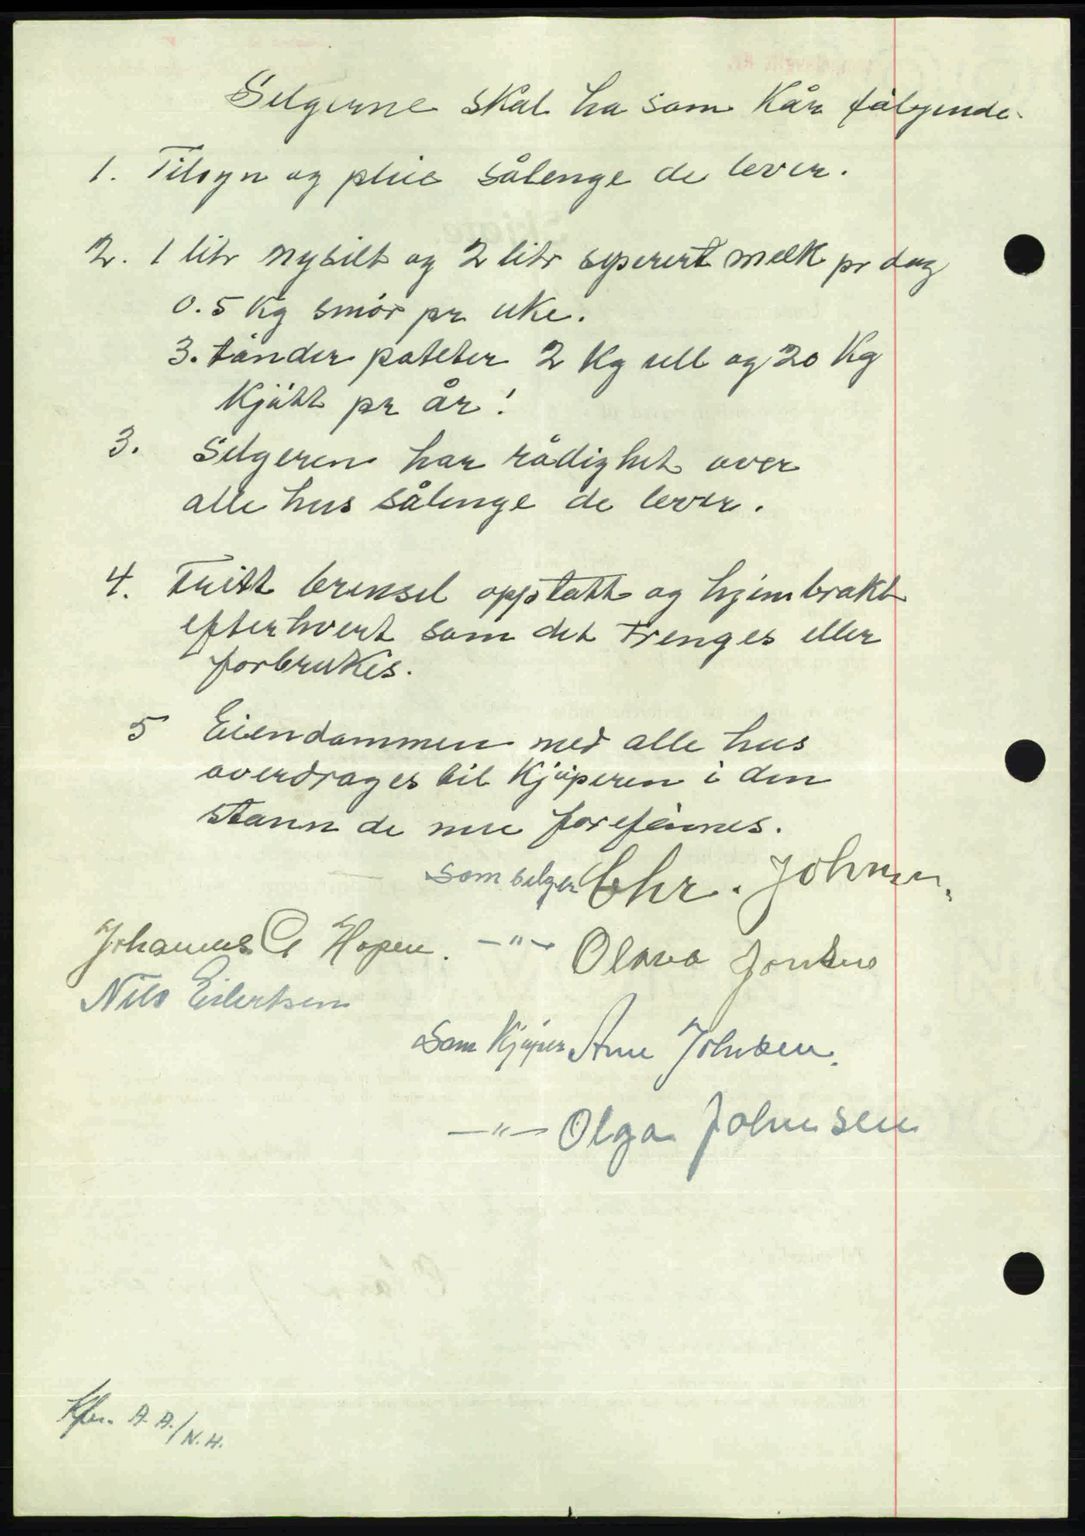 Selgerne skal ha som Kår følgende.
1. Tilsyn og pleie sålenge de lever.
2. 1 litr nysilt og 2 litr seperert melk pr dag
0.5 Kg smør pr uke.
3. tønder poteter 2 Kg ull og 20 Kg
Kjøtt pr år!
3. Selgeren har rådighet over
alle hus sålenge de lever.
4. Fritt brensel opptatt og hjembrakt
efterhvert som det trenges eller
forbrukes.
5 Eiendommen med alle hus
overdrages til Kjøperen i den
stann de nu forefinnes.
som selger Chr. Johnsen.
Johannes A Hopen. —"— Olava Jonsen
Nils Eilertsen
Som Kjøper Arne Johnsen.
—"— Olga Johnsen
Kfr. A A./N.H.